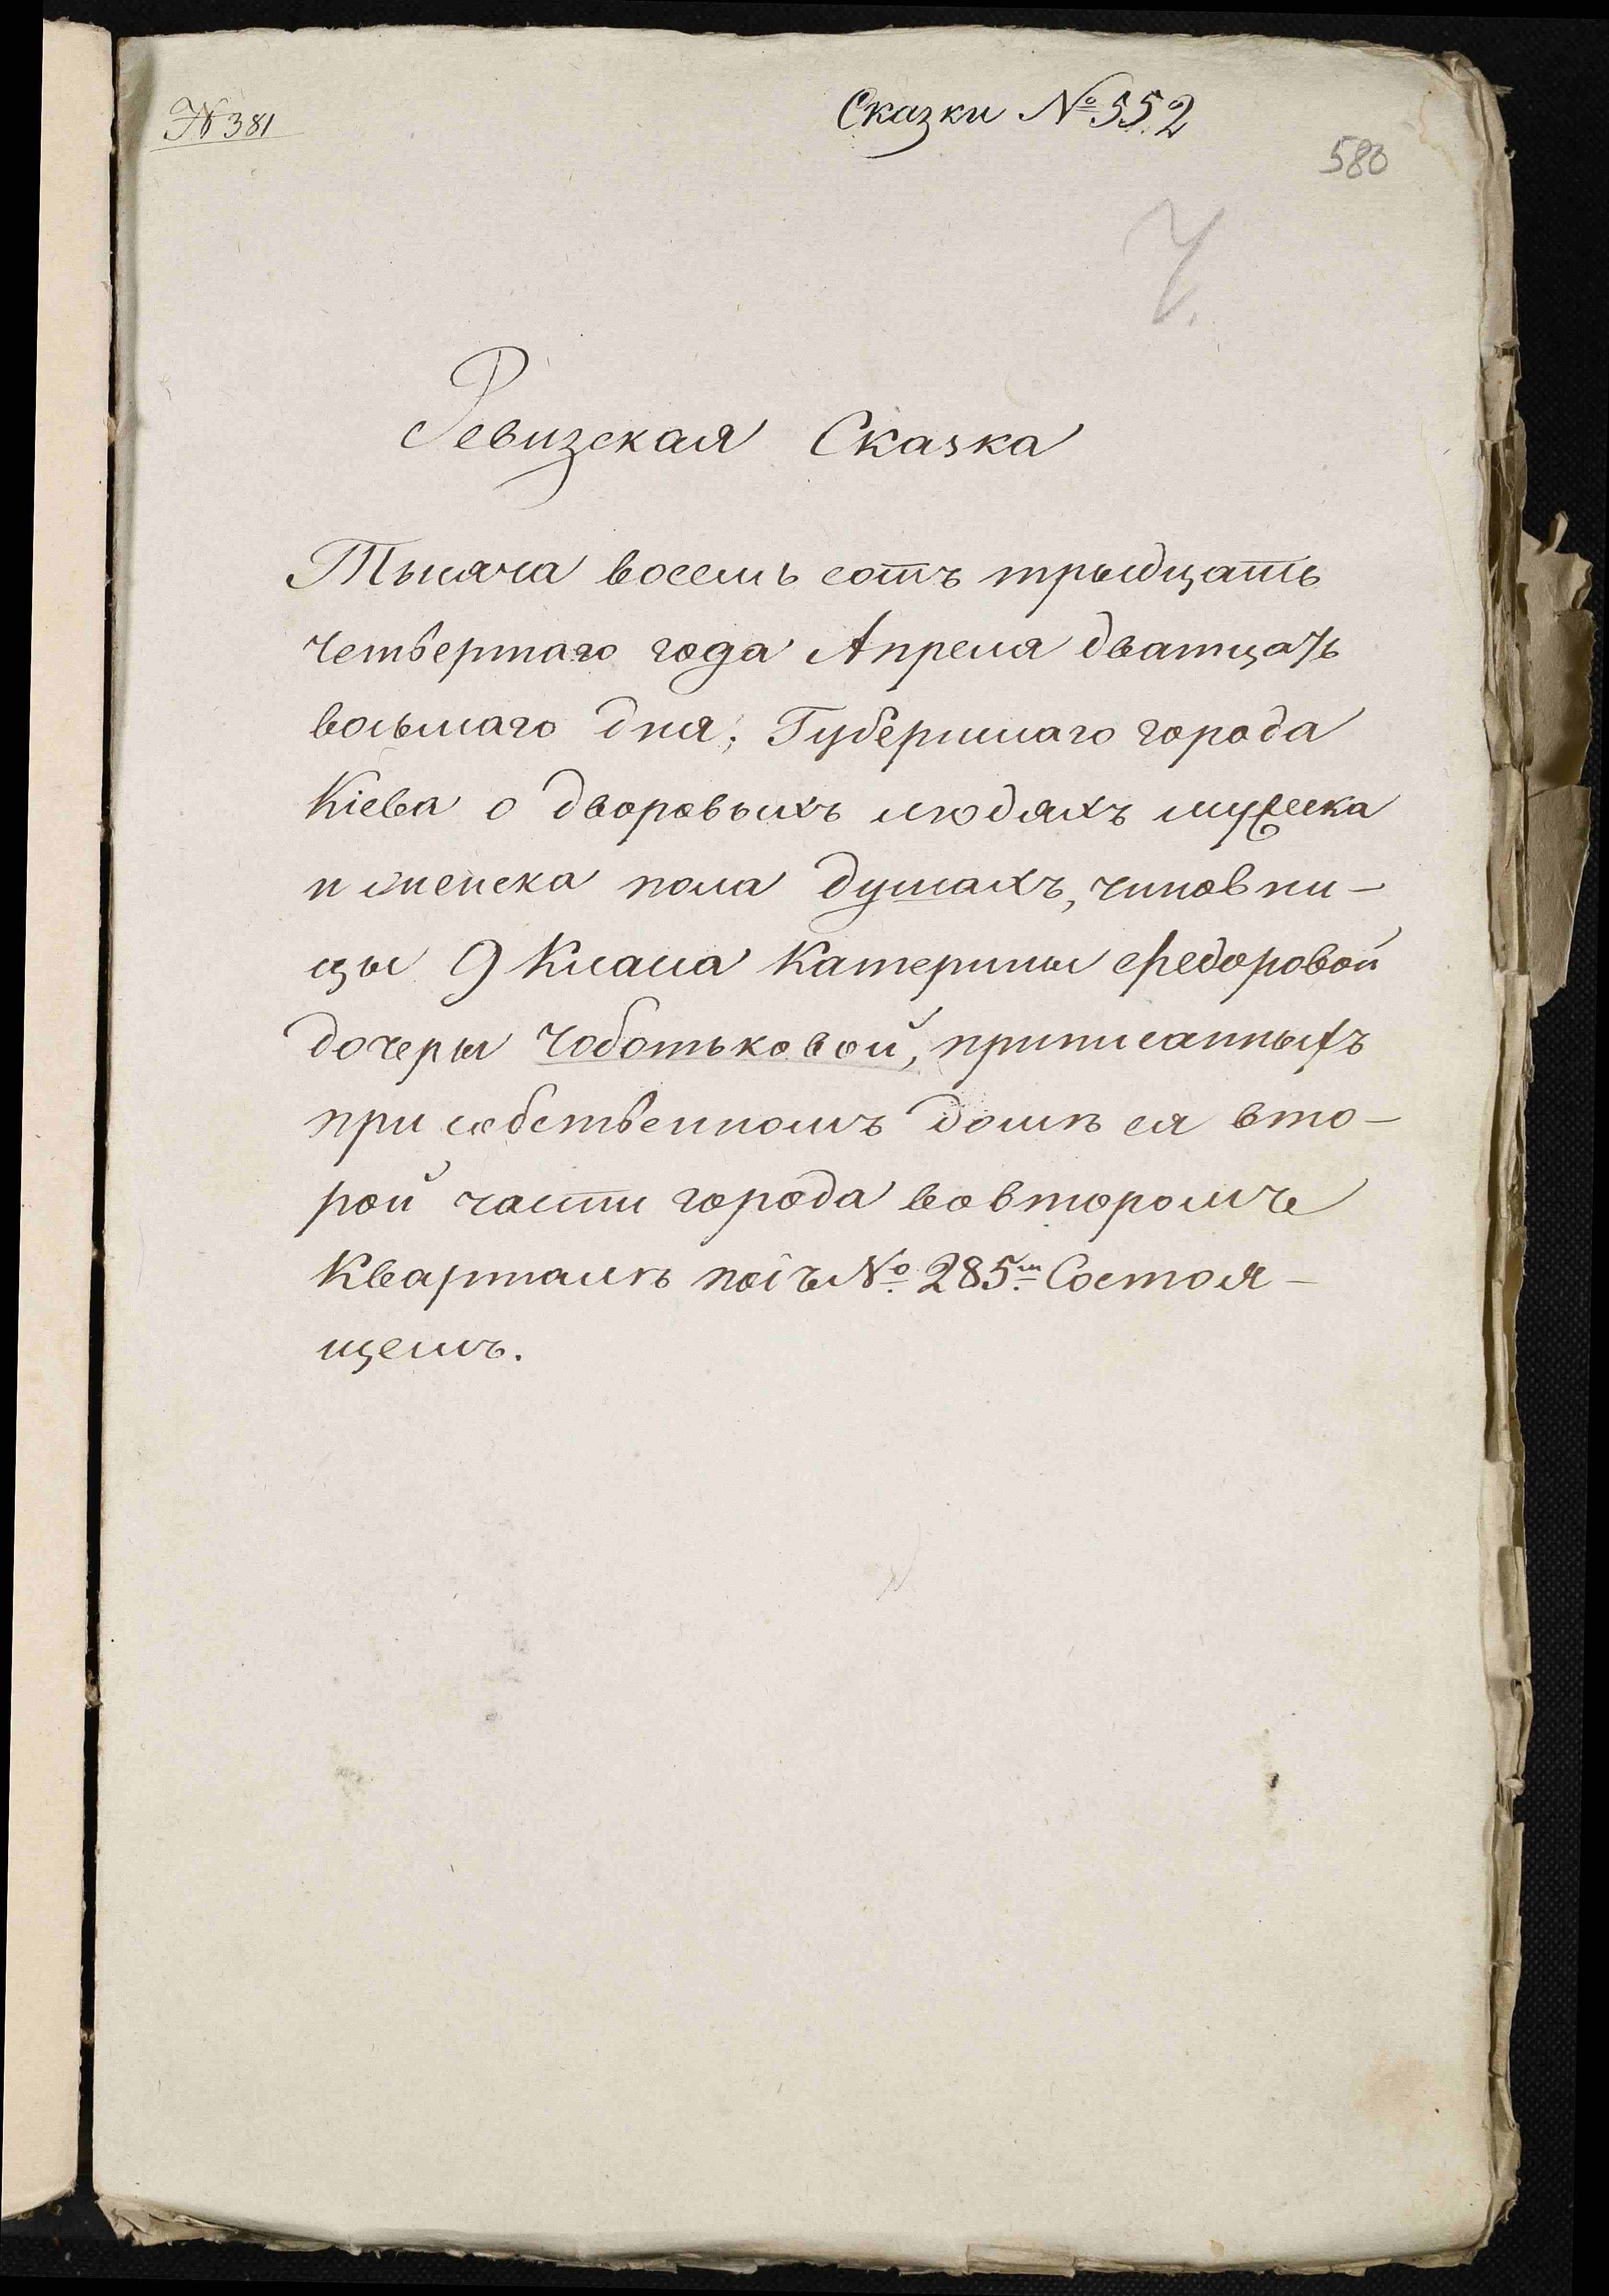 № 381
Сказки № 552
580
Ч.
Ревизская Сказка
Тысяча восемь сотъ трыдцать
четвертаго года Апреля дватцать
восьмаго дня; Губернскаго города
Кіева о дворовыхъ людяхъ мужеска
и женска пола душахъ, чиновни-
цы 9 Класа Катерины Федоровой
дочеры Чоботьковой, приписанныхъ
при собственномъ домѣ ея вто-
рой части города вовторомъ
Кварталѣ подъ № 285м Состоя-
щемъ.